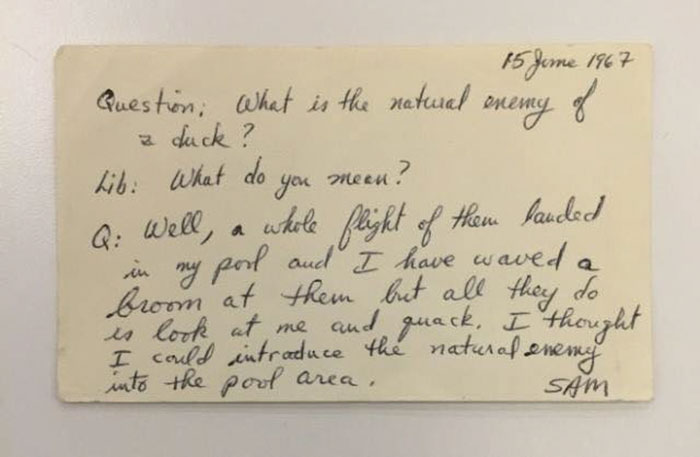 15 June 1967
Question: What is the natural enemy of
a duck?
Lib: What do you mean?
Q: Well, a whole flight of them landed
in my pool and I have waved a
broom at them but all they do
is look at me and quack. I thought
I could introduce the natural enemy
into the pool area.
SAM